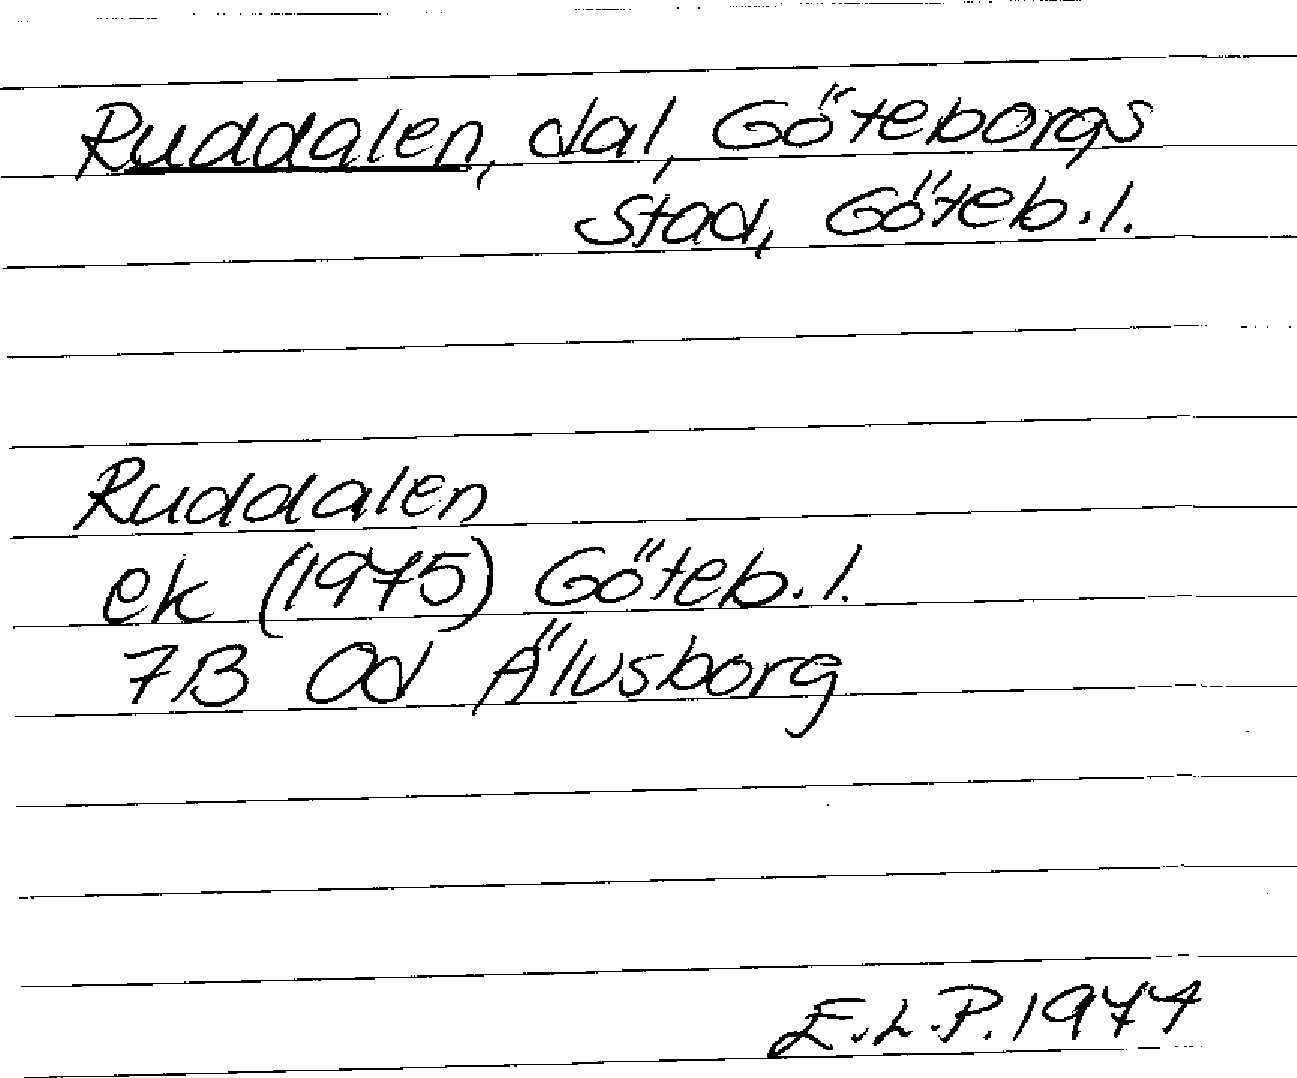 Ruddalen, dal, Göteborgs
stad, Göteb.l.
Ruddalen
ek (1975) Göteb.l.
7B 0d Älvsborg
E.L.P. 1977